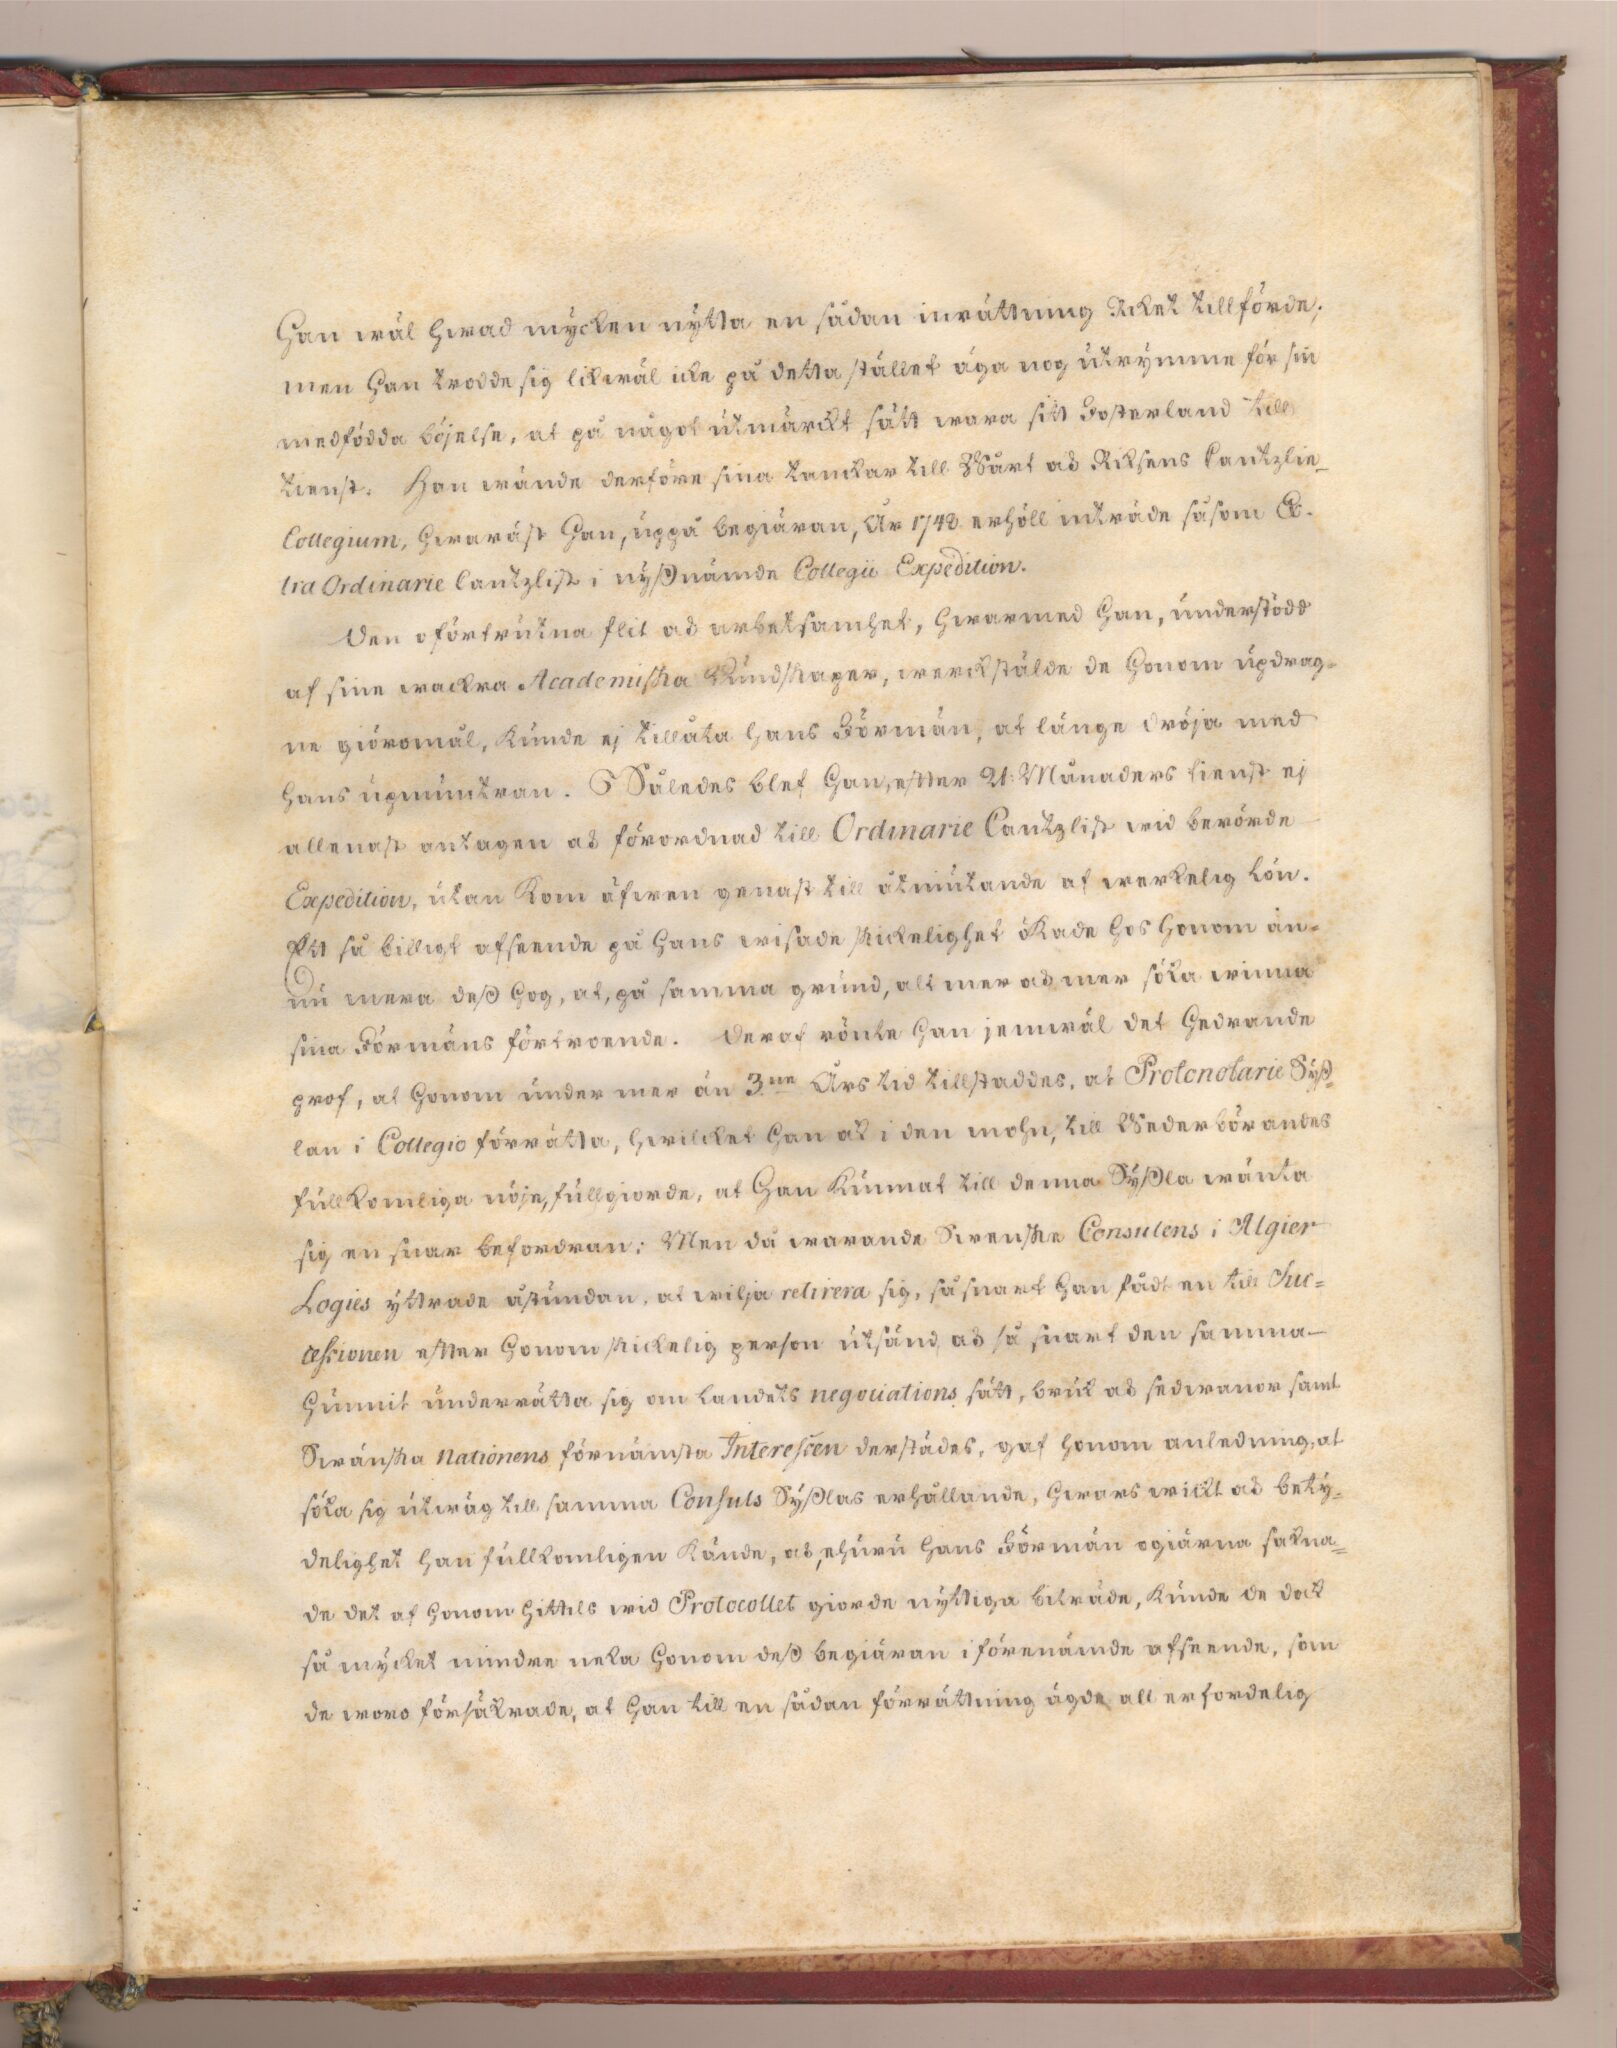 Han wäl hwad mycken nytta en sådan inrättning Riket tillförde;
men Han trodde sig likwäl icke på detta stället äga nog utrymme för sin
medfödda böjelse, at på något utmärckt sätt wara sitt Fosterland till
tienst. Han wände derföre sina tanckar till Wårt och Riksens Cantzlie_
Collegium, hwaräst Han, uppå begiäran, År 1748 erhöll inträde såsom Ex-
tra Ordinarie Cantzlist i nyßnämde Collegii Expedition.
Den oförtrutna flit och arbetsamhet, hwarmed Han, understödd
af sine wackra Academiska Kundskaper, werckstälde de Honom updrag-
ne giöromål, kunde ej tillåta Hans Förmän, at länge dröja med
Hans upmuntran. Således blef Han, efter 21. Månaders tienst ej
allenast antagen och förordnad till Ordinarie Cantzlist wid berörde
Expedition, utan kom äfwen genast till åtniutande af werkelig Lön.
Ett så billigt afseende på Hans wisade skickelighet ökade hos Honom än-
nu mera deß Hog, at, på samma grund, alt mer och mer söka winna
sina Förmäns förtroende. Deraf rönte Han jemwäl det Hedrande
prof, at Honom under mer än 3ne Års tid tillstaddes, at Protonotarie Syß-
lan i Collegio förrätta, hwilcket Han ock i den mohn, till Wederbörandes
fullkomliga nöje, fullgiorde, at Han kunnat till denna Syßla wänta
sig en snar befordran; Men då warande Swenske Consulens i Algier
Logies yttrade åstundan, at wilja retirera sig, så snart Han fådt en till Suc-
cessionen efter Honom skickelig person utsänd, och så snart den samma
Hunnit underrätta sig om Landets negociations sätt, bruk och sedwanor samt
Swänska Nationens förnämsta Interessen derstädes, gaf Honom anledning, at
söka sig utwäg till samma Consuls Syßlas erhållande, hwars wickt och bety-
delighet Han fullkomligen kände, och, ehuru Hans Förmän ogiärna sakna-
de det af Honom hittils wid Protocollet giorde nyttiga biträde, kunde de dock
så mycket mindre neka Honom deß begiäran i förenämde afseende, som
de woro försäkrade, at Han till en sådan förrättning ägde all erfordelig